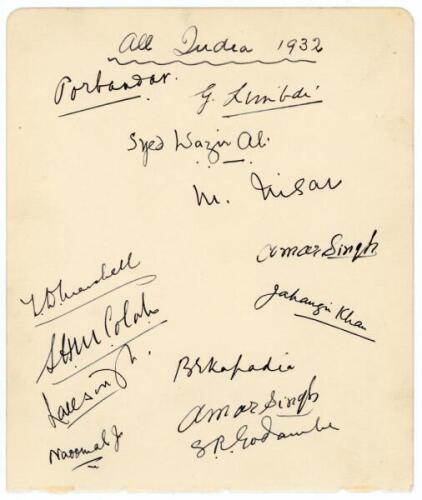 All India 1932
Porbandar.
G. Limbdi
Syed Wazir Ali
M. Nisar
Amar Singh
Jahangir Khan
S.H.M. Colah
Lall Singh.
Naoomal J.
B E Kapadia
Amar Singh
S.R. Godambe